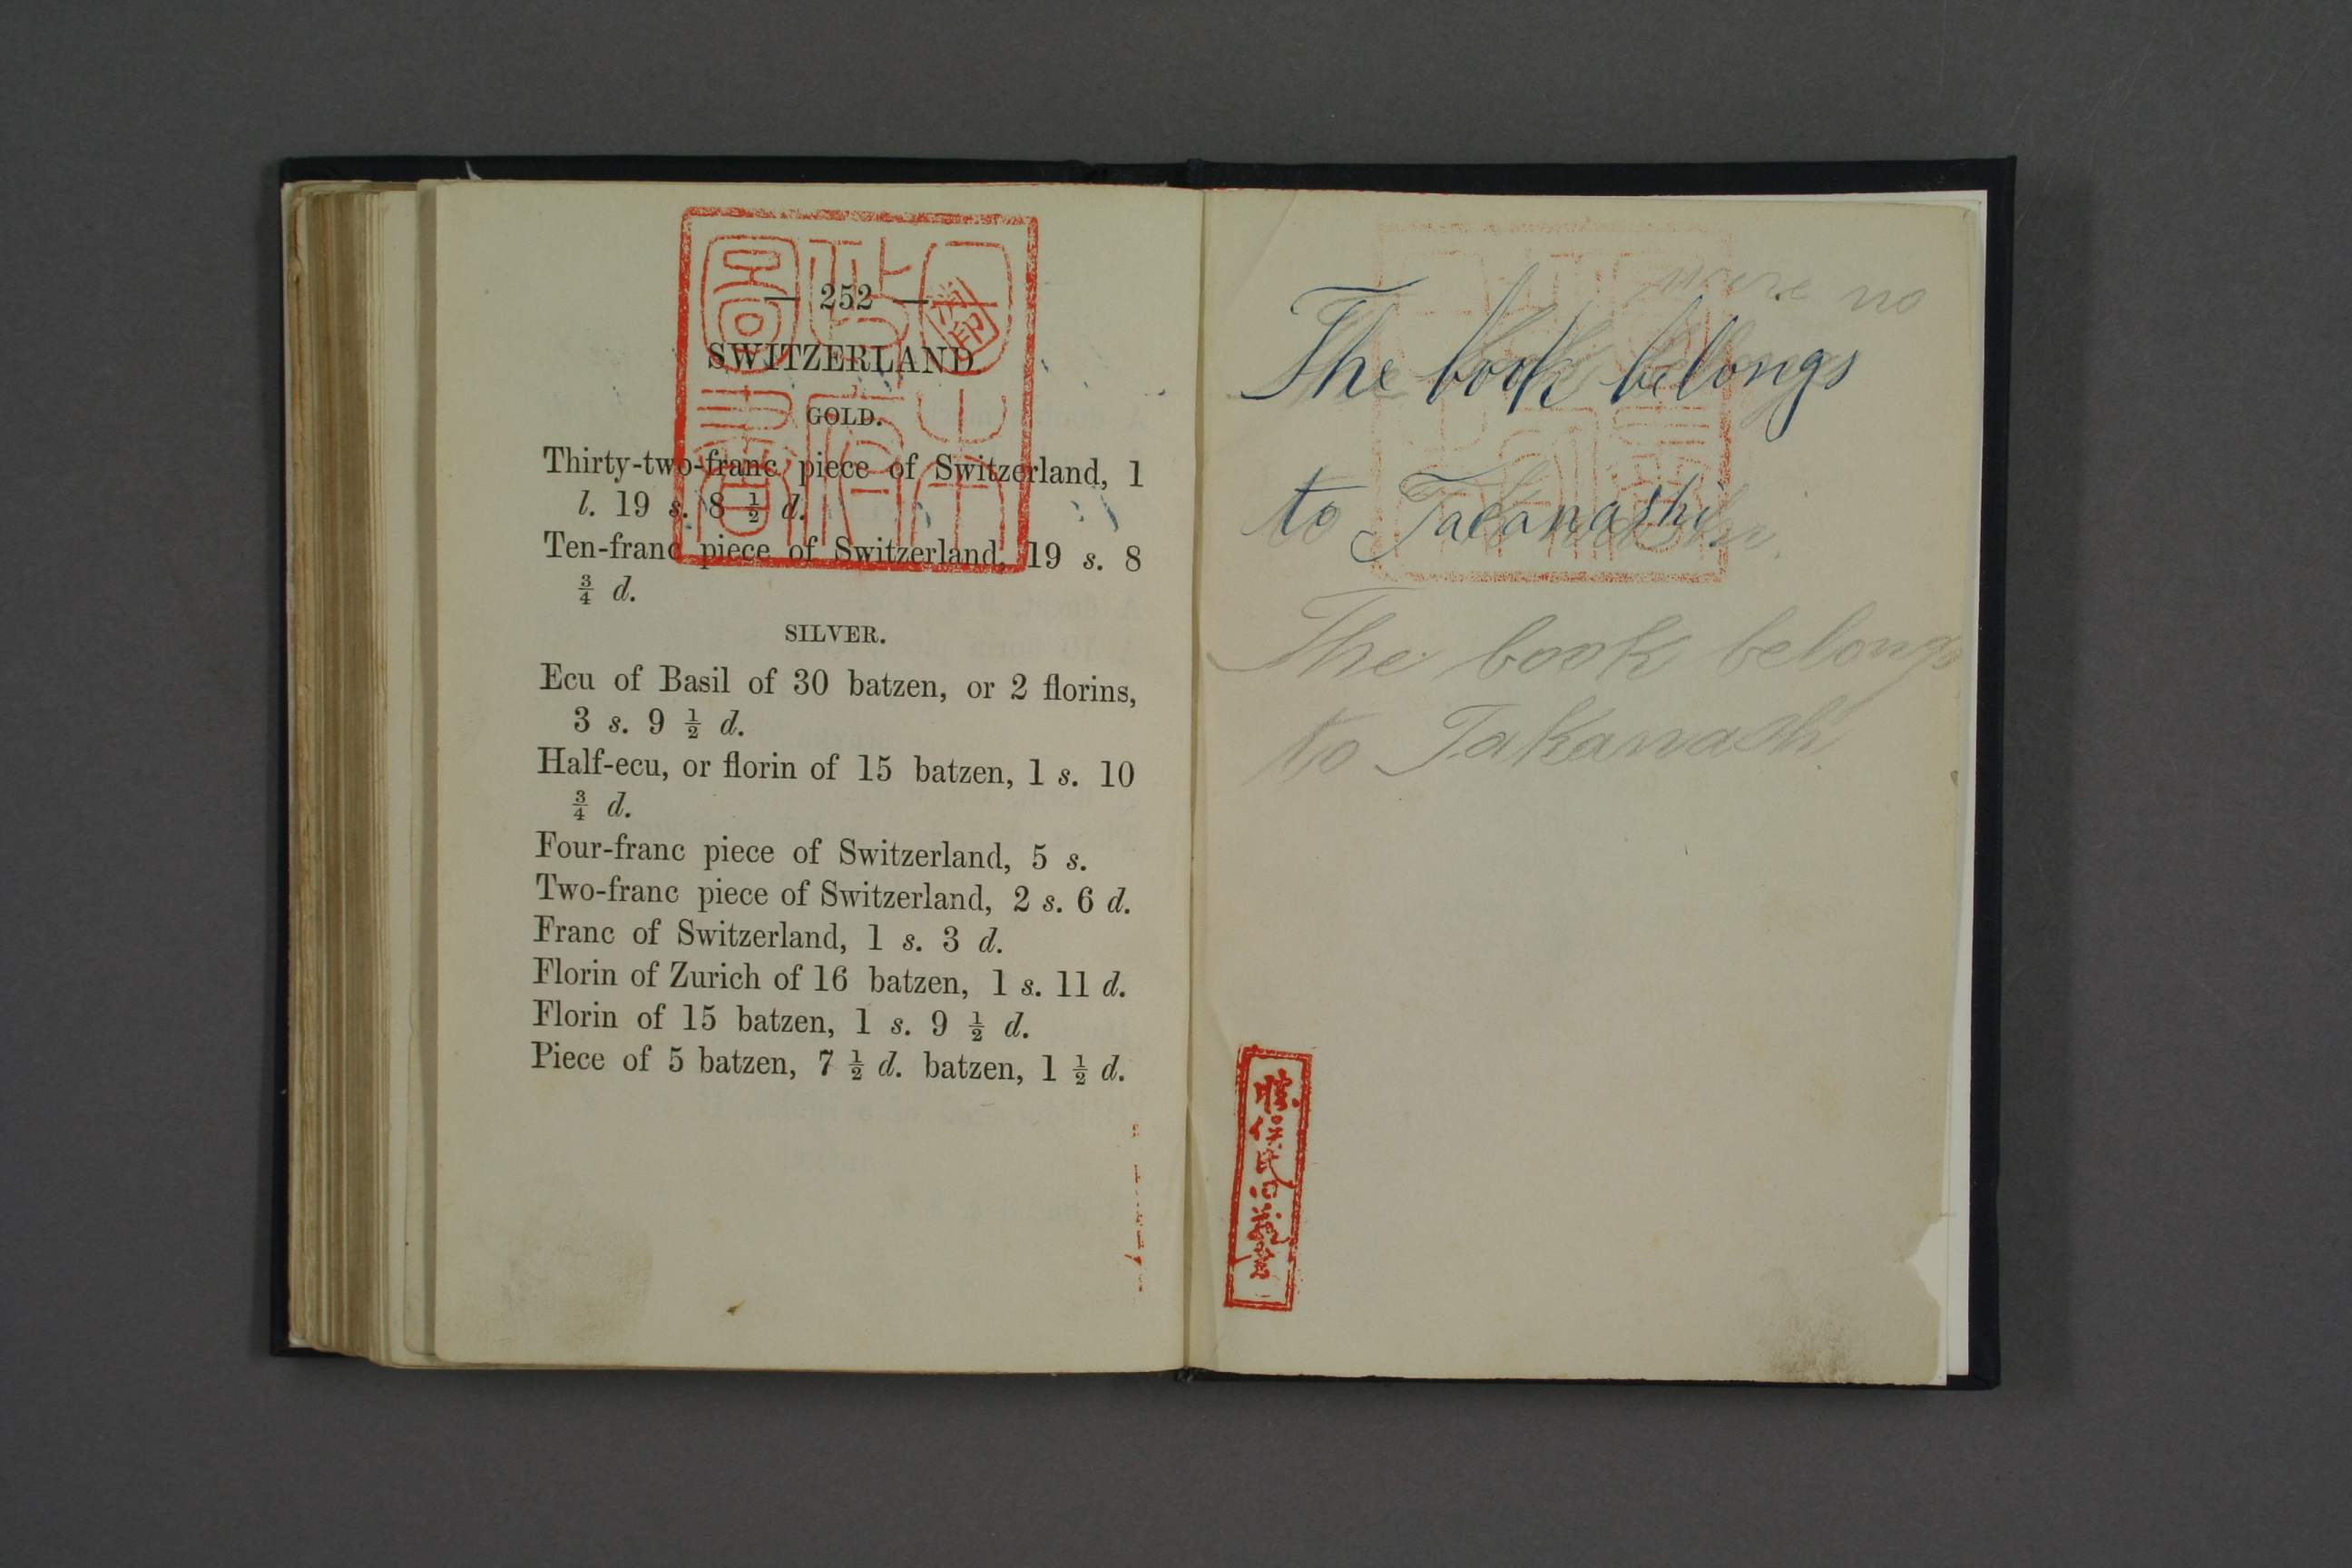 — 252 —
SWITZERLAND.
GOLD.
Thirty-two-franc piece of Switzerland, 1
l. 19 s. 8 ½ d.
Ten-franc piece of Switzerland, 19 s. 8
¾ d.
SILVER.
Ecu of Basil of 30 batzen, or 2 florins,
3 s. 9 ½ d.
Half-ecu, or florin of 15 batzen, 1 s. 10
¾ d.
Four-franc piece of Switzerland, 5 s.
Two-franc piece of Switzerland, 2 s. 6 d.
Franc of Switzerland, 1 s. 3 d.
Florin of Zurich of 16 batzen, 1 s. 11 d.
Florin of 15 batzen, 1 s. 9 ½ d.
Piece of 5 batzen, 7 ½ d. batzen, 1 ½ d.
no
The book belongs
to Tacanashi
The book belongs
to Takanashi
勝俣氏旧蔵書